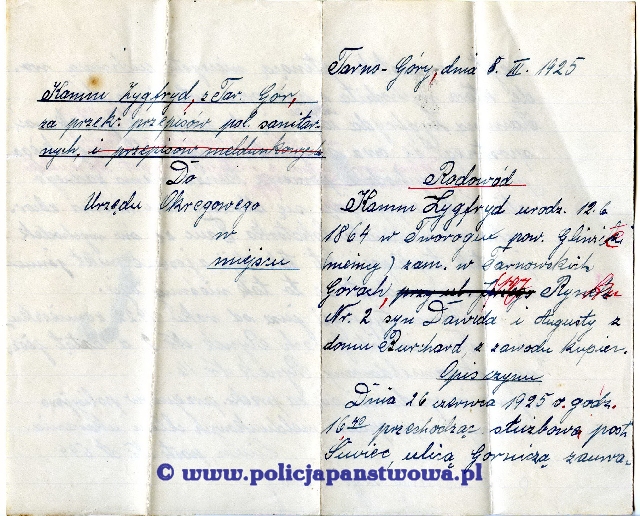 Kamm Zygfryd, z Tar. Gor,
za przek. przepisów pol. sanitar-
nych, i przepisów meldunkowych
Do
Urzędu Okręgowego
w
miejscu
Tarno-Góry, dnia 8. III. 1925
Rodowód
Kamm Zygfryd urodz. 12.6
1864 w Tworogu pow. Gliwicki
(niemcy) zam. w Tarnowskich
Górach, przy ul. Rynku
Nr. 2 syn Dawida i Augusty z
domu Burchard, z zawodu kupiec.
Opis czynu
Dnia 26 czerwca 1925 o godz.
16 przechodząc służbową post.
Siwiec, ulicą Gorniczą, zauwa-
© www.policjapanstwowa.pl